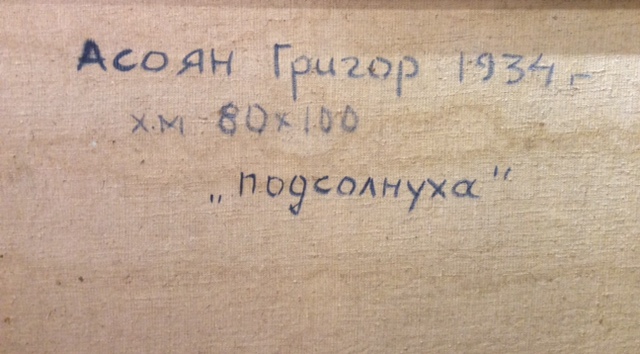 Асоян Григор 1934.-
х.м 80х100
„подсолнуха"